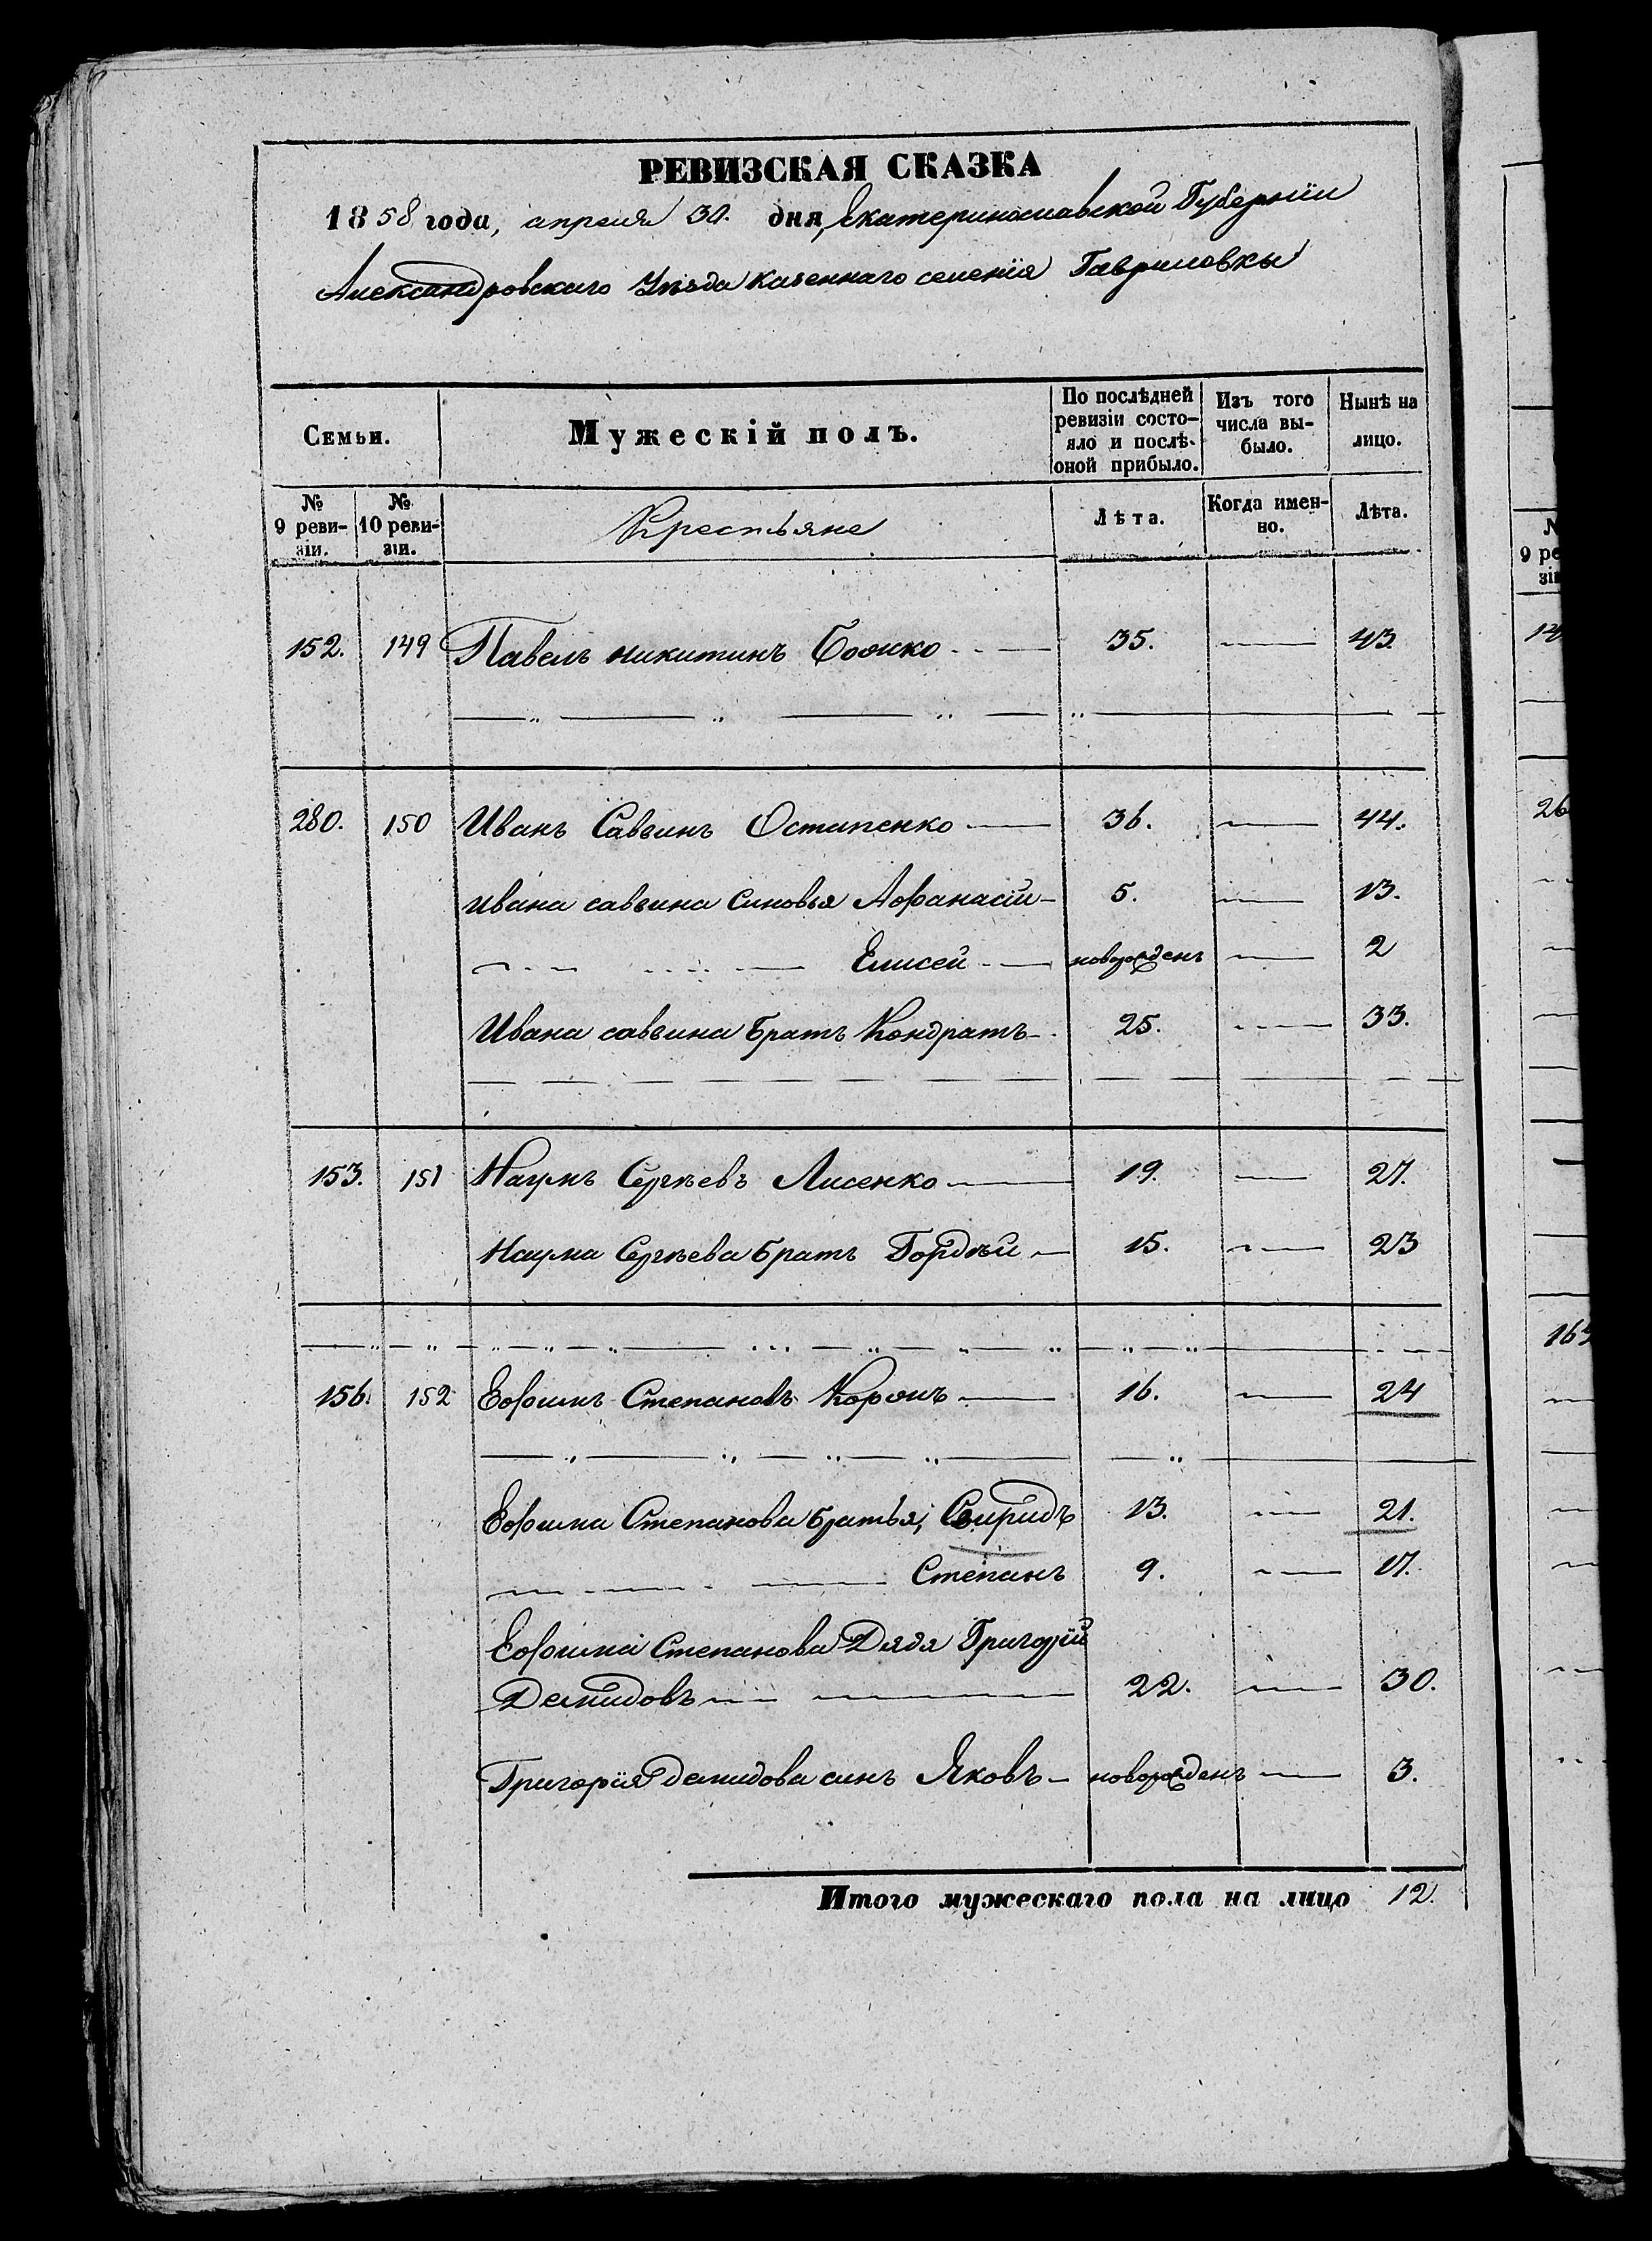 РЕВИЗСКАЯ СКАЗКА
1858 года, апреля 30. дня, Екатеринославской Губернiи
Александровскаго Уѣзда казеннаго селенiя Гавриловки
Семьи.
Мужескiй полъ.
По послѣдней ревизiи состо-яло и послѣ-оной прибыло.
Изъ того числа вы-было.
Нынѣ на лицо.
№ 9 реви-зiи.
№ 10 реви-зiи.
Крестьяне
Лѣта.
Когда имен-но.
Лѣта.
152. 149 Павелъ никитинъ Божко 35. 43.
280. 150 Иванъ Саввинъ Остапенко 36. 44.
Ивана саввина синовья Афанасiй 5. 13.
Елисей новорожденъ 2
Ивана саввина братъ Кондратъ 25. 33.
153. 151 Наумъ Сергѣевъ Лисенко 19. 27.
Наума Сергѣева братъ Гордѣй 15. 23
156. 152 Ефимъ Степановъ Коржъ 16. 24
Ефима Степанова братья, Свиридъ 13. 21.
Степанъ 9. 17.
Ефима Степанова Дядя Григорiй
Демидовъ 22. 30.
Григорiя Демидова синъ Яковъ новорожденъ 3.
Итого мужескаго пола на лицо 12.
№
9 ре
зiи
26